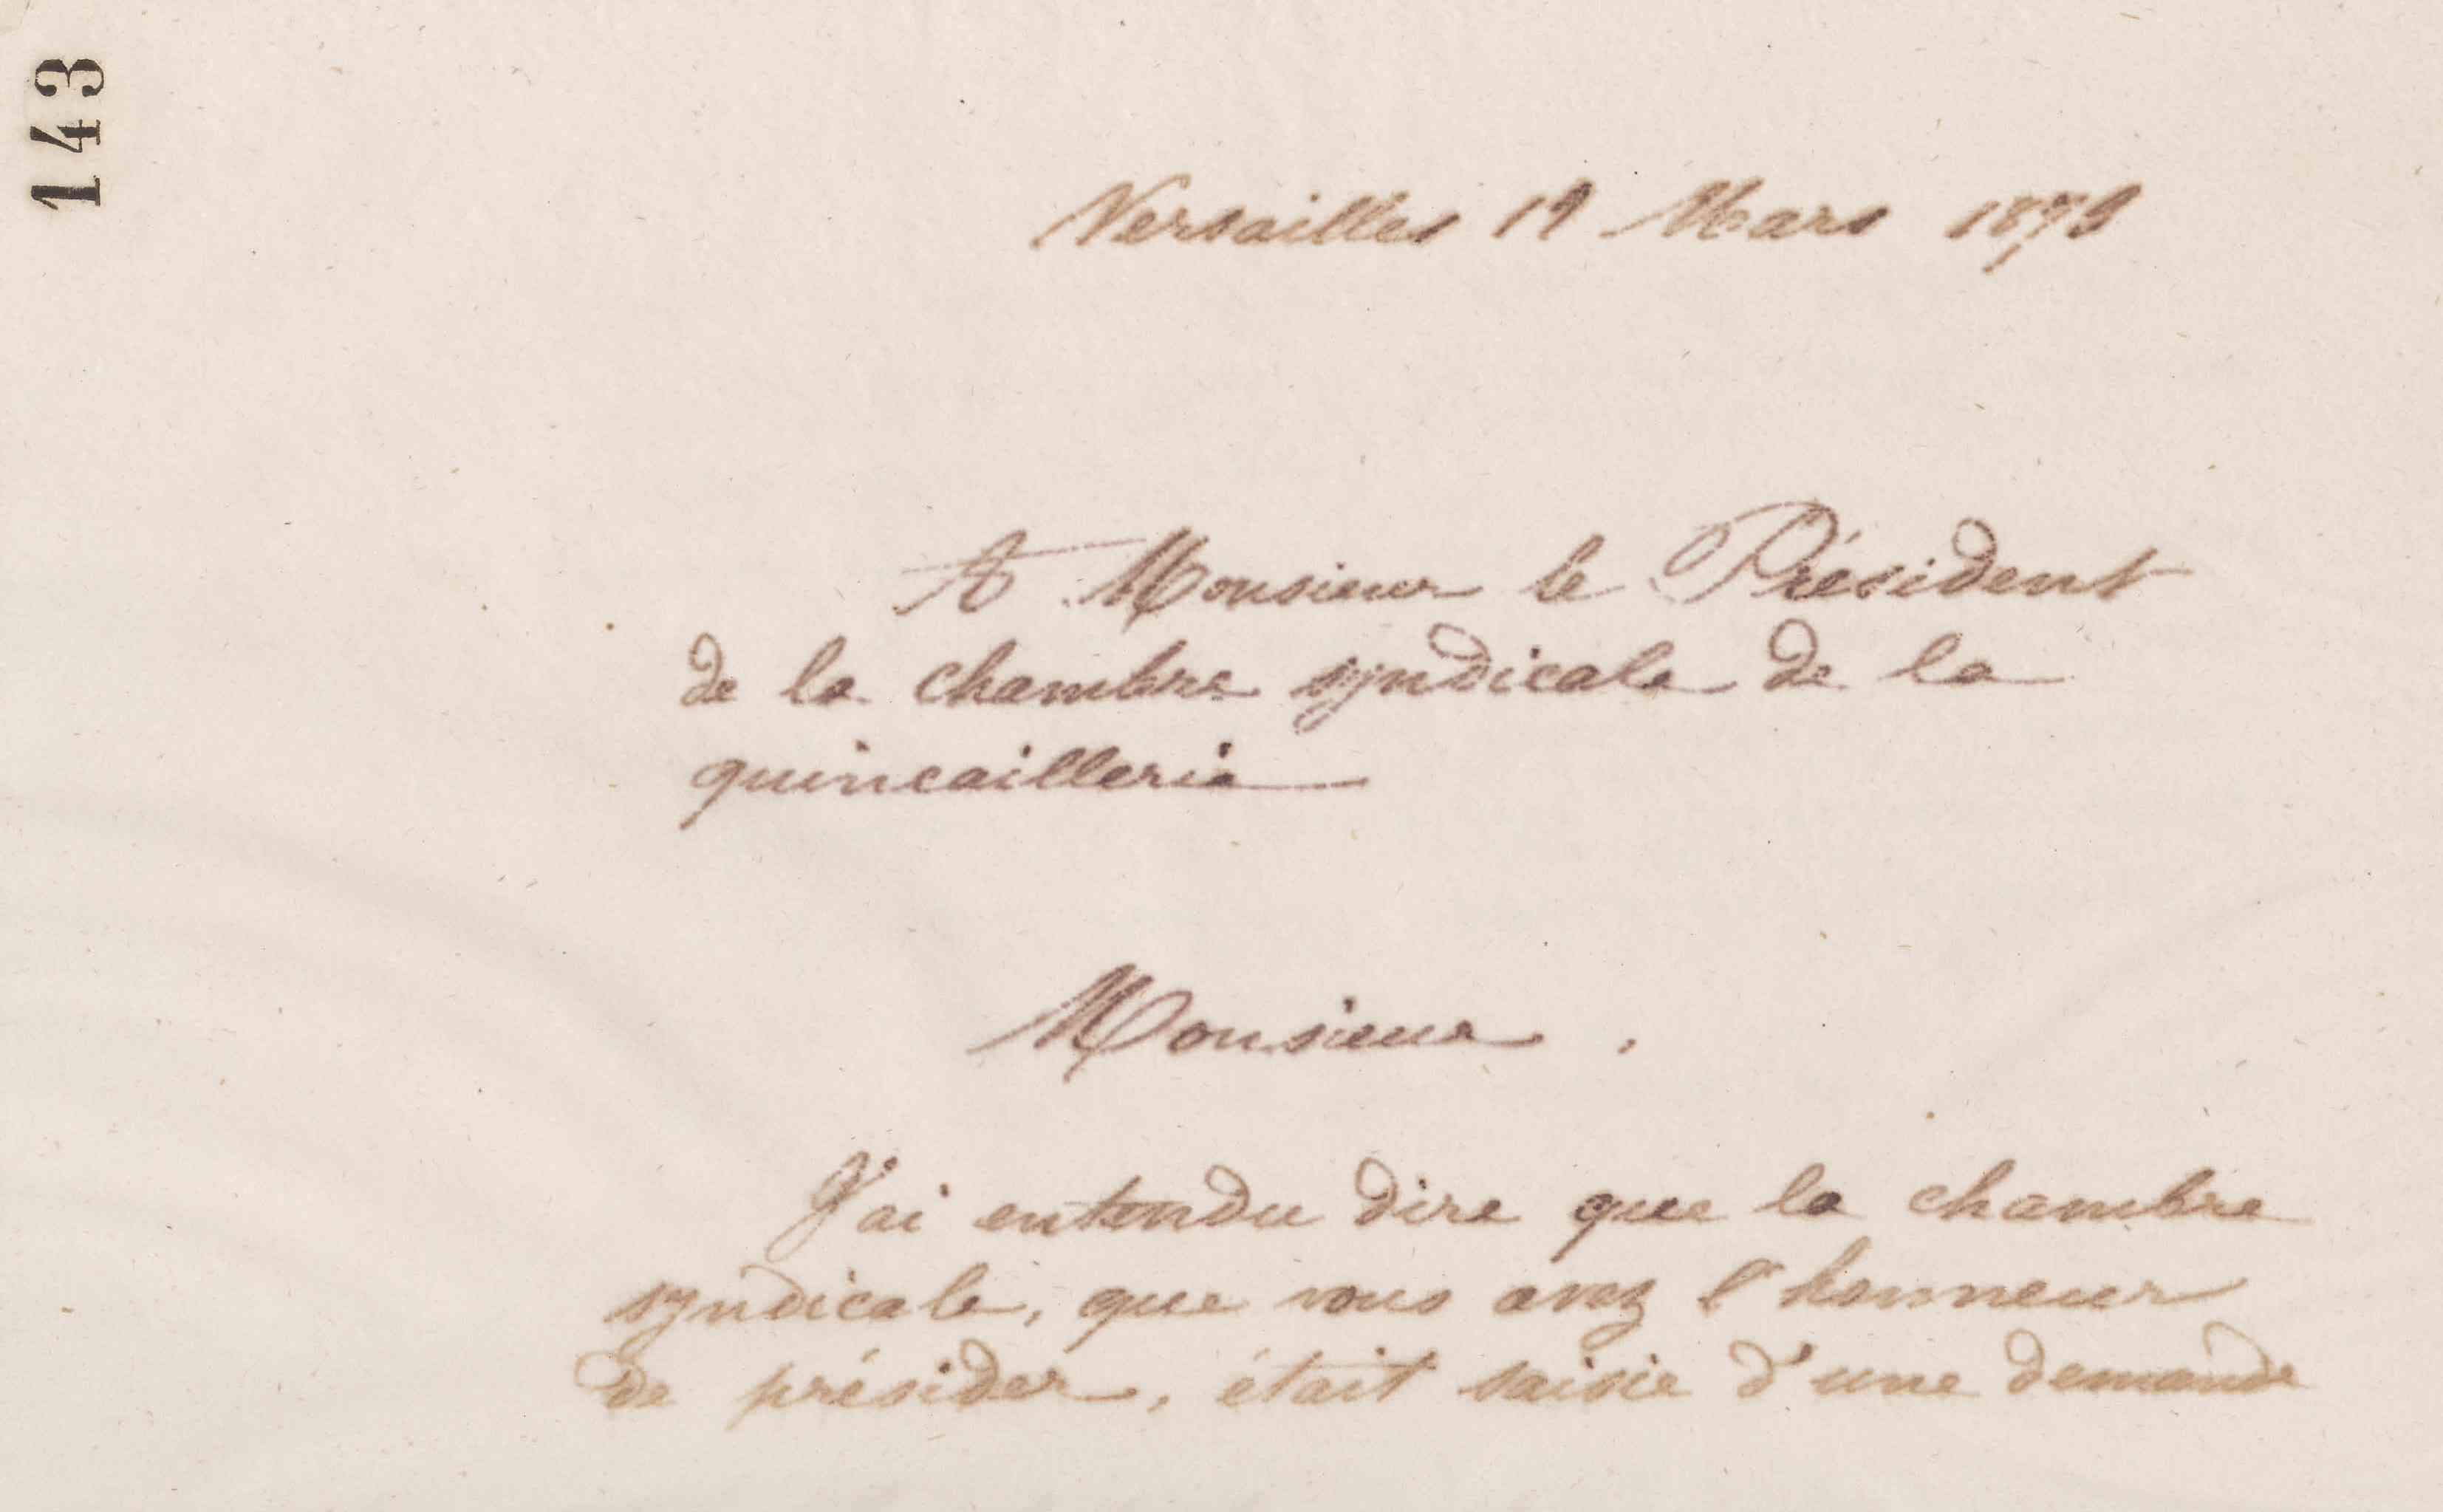 143
Versailles 19 Mars 1879
A Monsieur le Président
de la chambre syndicale de la
quincaillerie
Monsieur,
J'ai entendu dire que la chambre
syndicale, que vous avez l'honneur
de présider, était saisie d'une demande